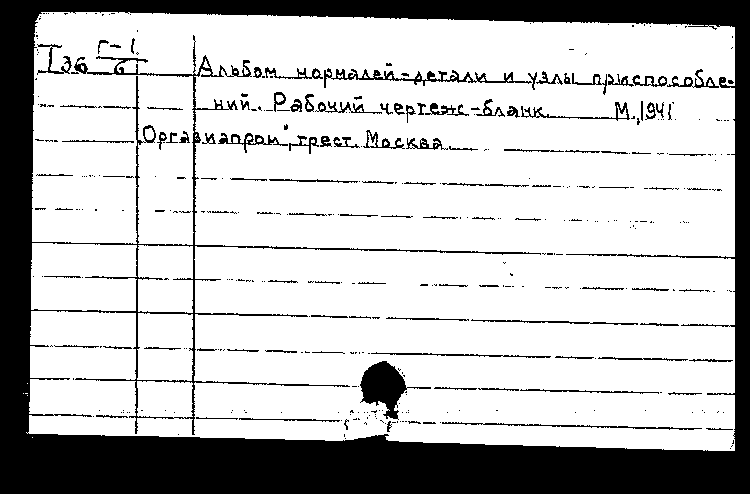 I 36 Г-1/6
Альбом нормалей-детали и узлы приспособле-
ний. Рабочий чертеж-бланк. М.,1941
„Оргавиапром", трест. Москва.